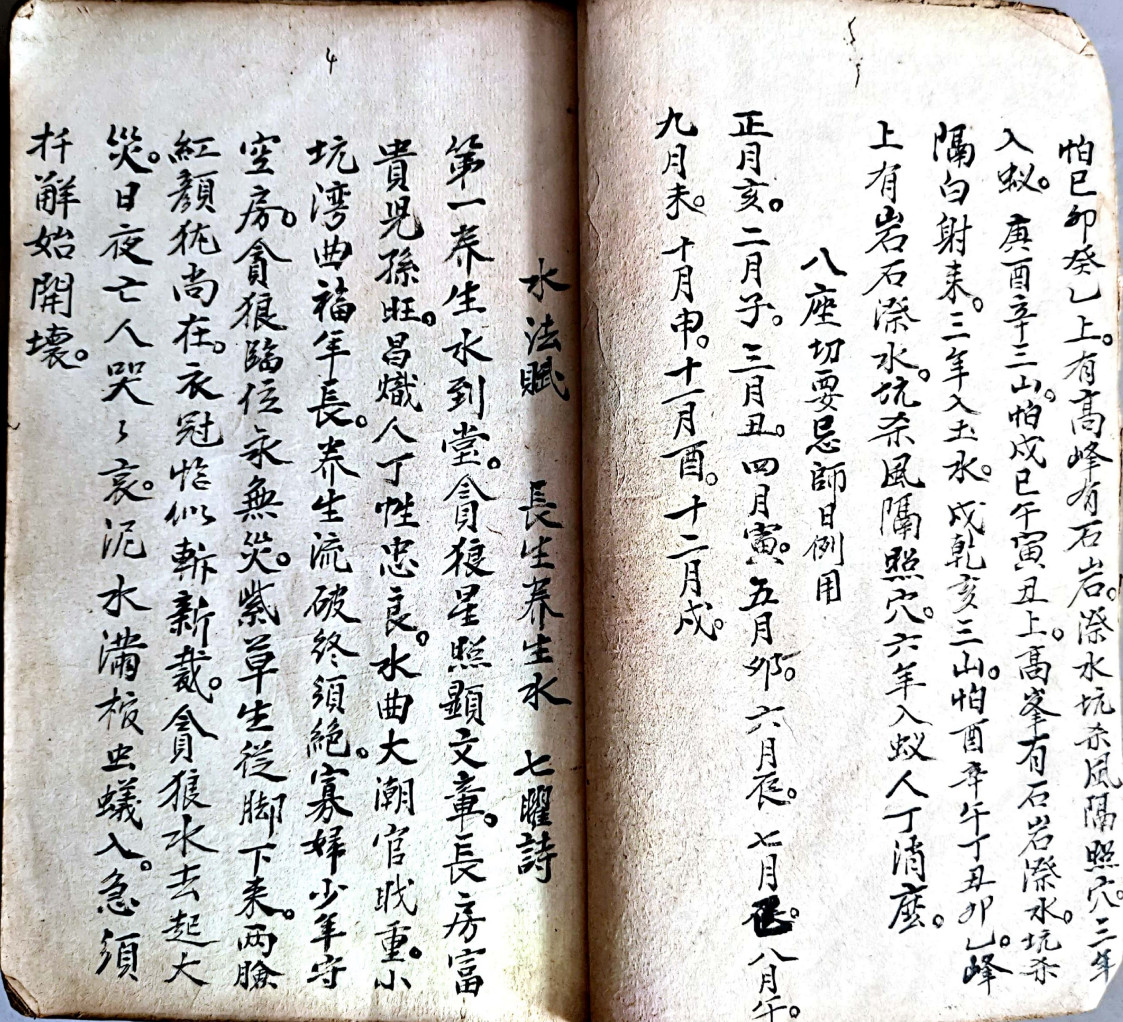 5
怕巳卯癸乙上。有高峰有石岩。漈水坑杀風隔照穴。三年
入蚁。庚酉辛三山。怕戍巳午寅丑上。高峯有石岩漈水。坑杀
隔白射来。三年入土水。戍乾亥三山。怕酉辛午丁丑卯乙。峰
上有岩石漈水。坑杀風隔照穴。六年入蚁人丁消磨。
八座切要忌師日例用
正月亥。二月子。三月丑。四月寅。五月卯。六月辰。七月巳。八月午。
九月未。十月申。十一月酉。十二月戍。
4
水法賦 長生养生水 七曜詩
第一养生水到堂。貪狼星照顯文章。長房富
貴児孫旺。昌熾人丁性忠良。水曲大潮官戝重。小
坑湾曲福年長。养生流破終須絶。寡婦少年守
空房。貪狼臨位永無災。紫草生從脚下来。両臉
紅顔犹尚在。衣冠恰似斬新裁。貪狼水去起大
災。日夜亡人哭々哀。泥水滿棺虫蟻入。急須
扦觧始開壞。